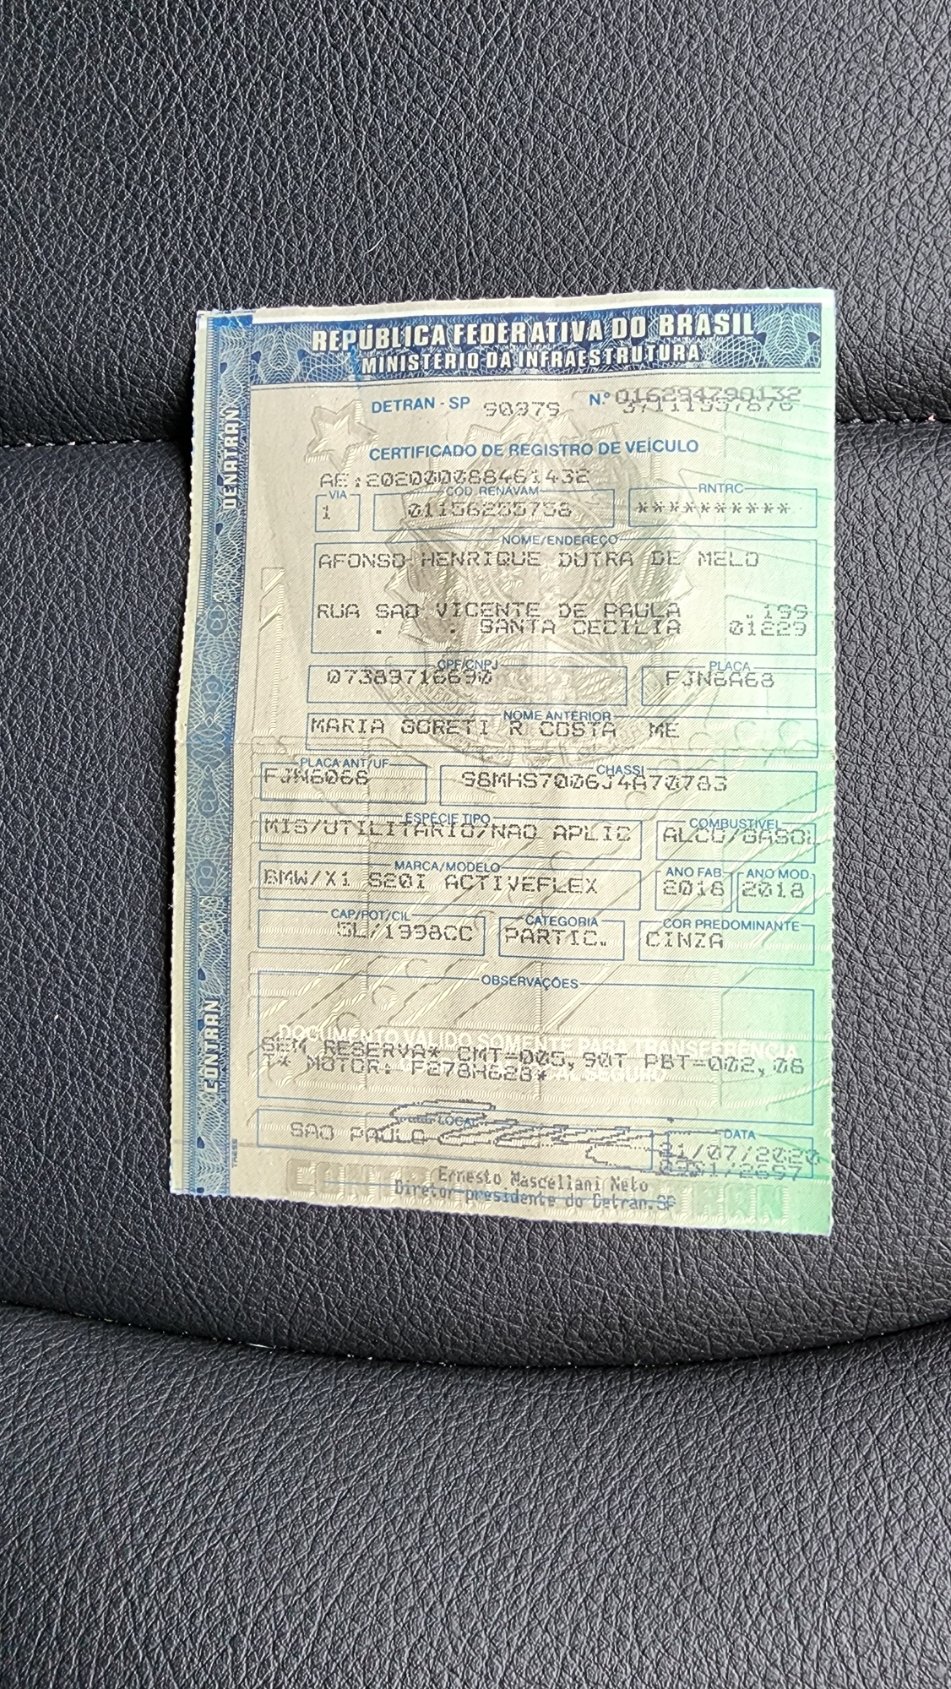 REPÚBLICA FEDERATIVA DO BRASIL
MINISTÉRIO DA INFRAESTRUTURA
DENATRAN
CONTRAN
DETRAN - SP 90979 N.º
CERTIFICADO DE REGISTRO DE VEÍCULO
AE:202000088461432
VIA CÓD. RENAVAM RNTRC
1 **********
NOME/ENDEREÇO
AFONSO HENRIQUE DUTRA DE MELO
RUA SAO VICENTE DE PAULA .199
. . SANTA CECILIA 01229
CPF/CNPJ PLACA
07389716690 FJN6A68
NOME ANTERIOR
MARIA GORETI R COSTA ME
PLACA ANT/UF CHASSI
FJN6068 98MHS7006J4A70783
ESPÉCIE TIPO COMBUSTÍVEL
MIS/UTILITARIO/NAO APLIC ALCO/GASOL
MARCA/MODELO ANO FAB. ANO MOD.
BMW/X1 S20I ACTIVEFLEX 2018 2018
CAP/POT/CIL CATEGORIA COR PREDOMINANTE
5L/1998CC PARTIC. CINZA
OBSERVAÇÕES
DOCUMENTO VÁLIDO SOMENTE PARA TRANSFERÊNCIA
SEM RESERVA* CMT=005,90T PBT=002,06
T* MOTOR: F278H628*
LOCAL DATA
SAO PAULO 31/07/2020
Ernesto Mascellani Neto
Diretor-presidente do Detran.SP